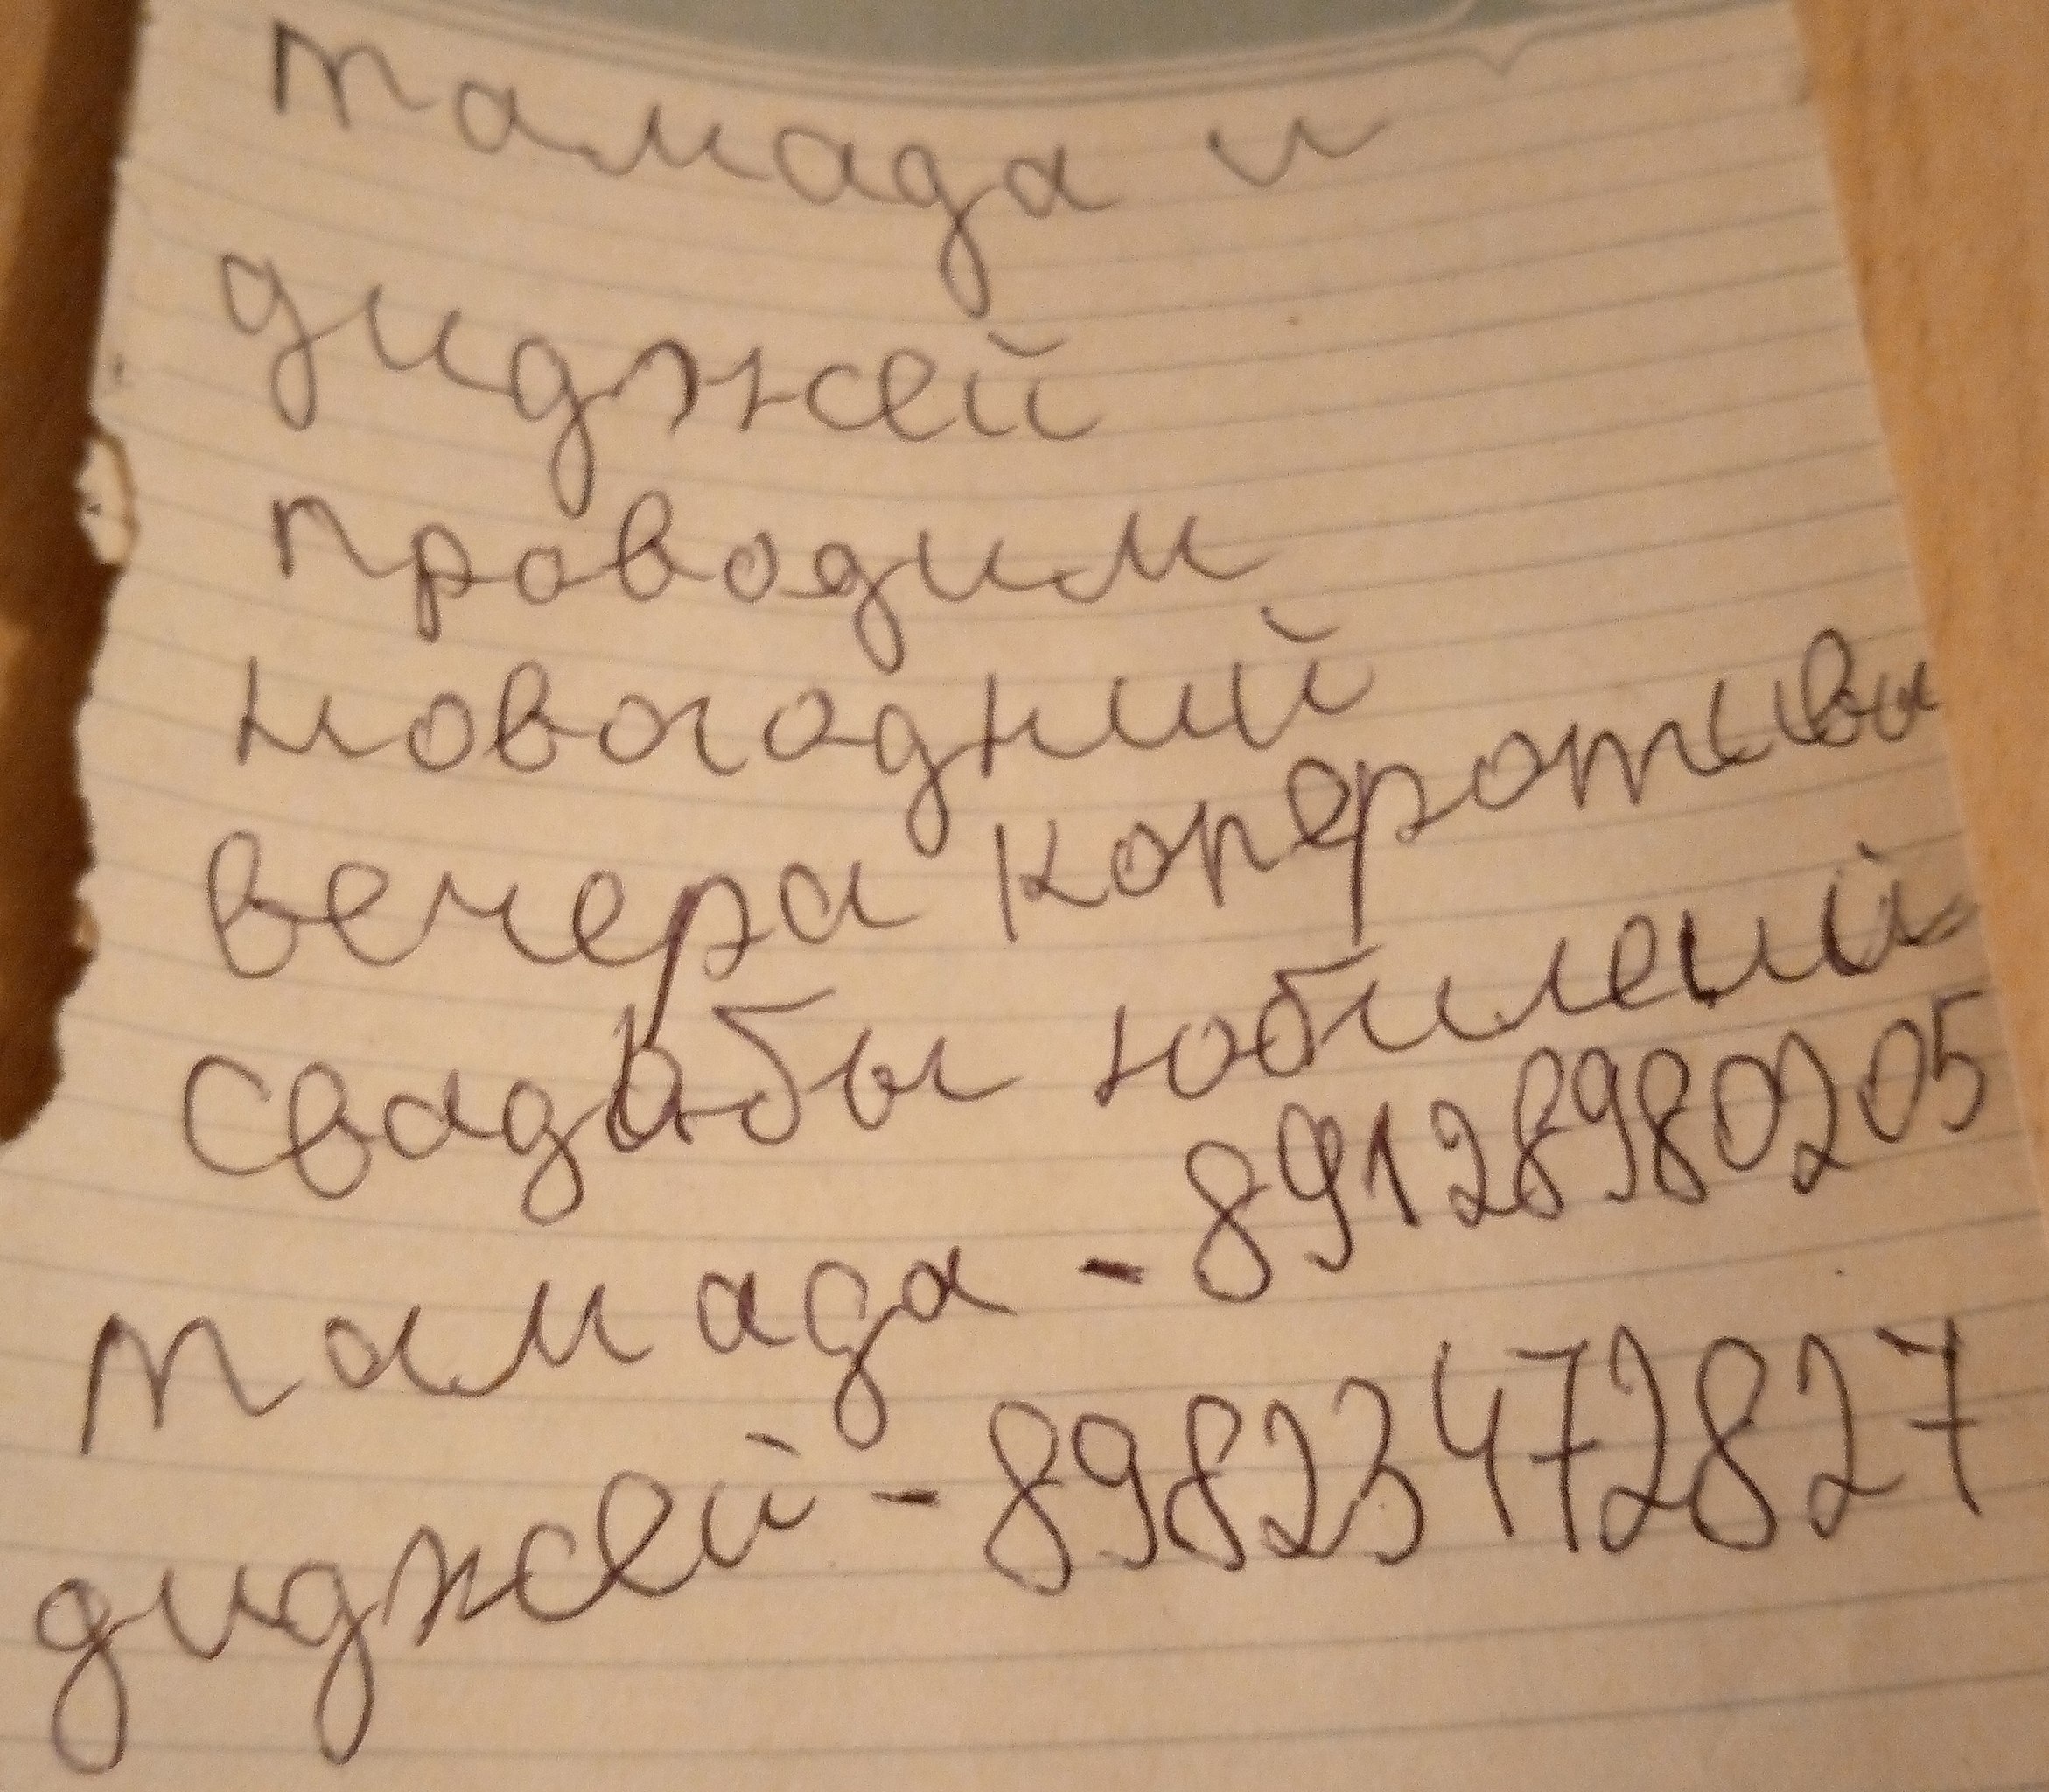 тамада и
диджей
проводим
новогодний
вечера корперотивы
свадьбы юбилеий
тамада - 89128980205
диджей - 89823472827